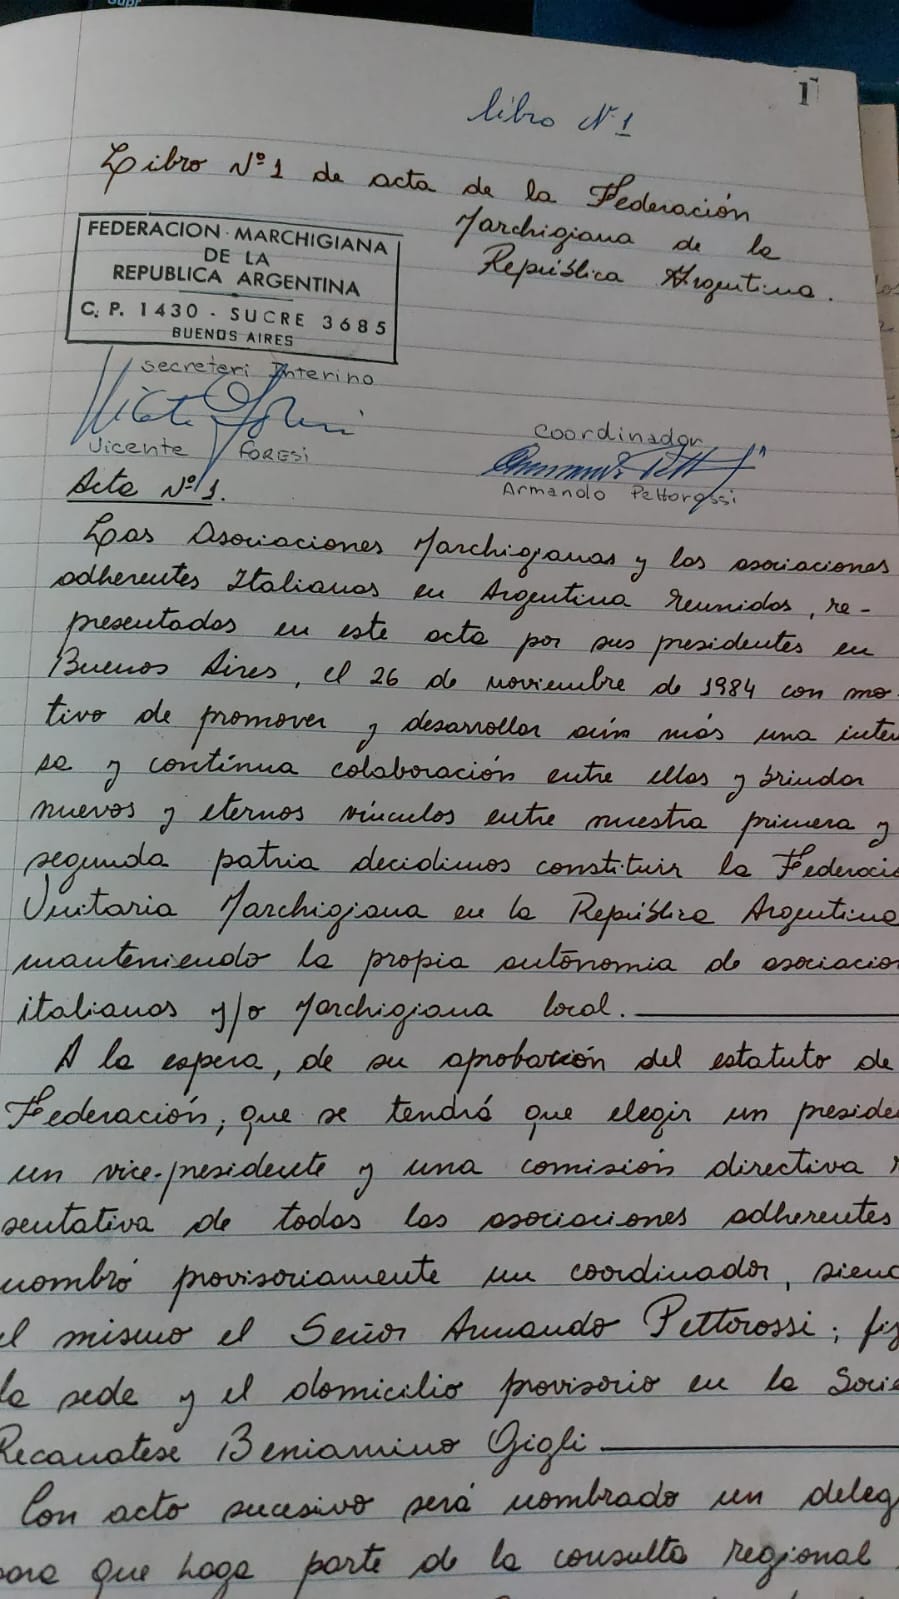 1
libro Nº 1
Libro Nº 1 de acta de la Federación
Marchigiana de la
República Argentina.
FEDERACION MARCHIGIANA
DE LA
REPUBLICA ARGENTINA
C. P. 1430 - SUCRE 3685
BUENOS AIRES
secreteri Interino
Vicente FORESI
coordinador
Armando Pettorossi
Acta Nº 1.
Las Asociaciones Marchigianas y las asociaciones
adherentes Italianas en Argentina reunidas, re-
presentadas en este acta por sus presidentes en
Buenos Aires, el 26 de noviembre de 1984 con mo-
tivo de promover y desarrollar aún más una inten
sa y contínua colaboración entre ellas y brindar
nuevos y eternos vínculos entre nuestra primera y
segunda patria decidimos constituir la Federació
Unitaria Marchigiana en la República Argentina
manteniendo la propia autonomia de asociacion
italianas y/o Marchigiana local.
A la espera, de su aprobación del estatuto de
Federación, que se tendrá que elegir un preside
un vice-presidente y una comisión directiva r
sentativa de todas las asociaciones adherentes
nombró provisoriamente un coordinador, siend
el mismo el Señor Armando Pettorossi; fij
la sede y el domicilio provisorio en la Socie
Recanatese Beniamino Gigli
Con acto sucesivo será nombrado un deleg
para que haga parte de la consulta regional